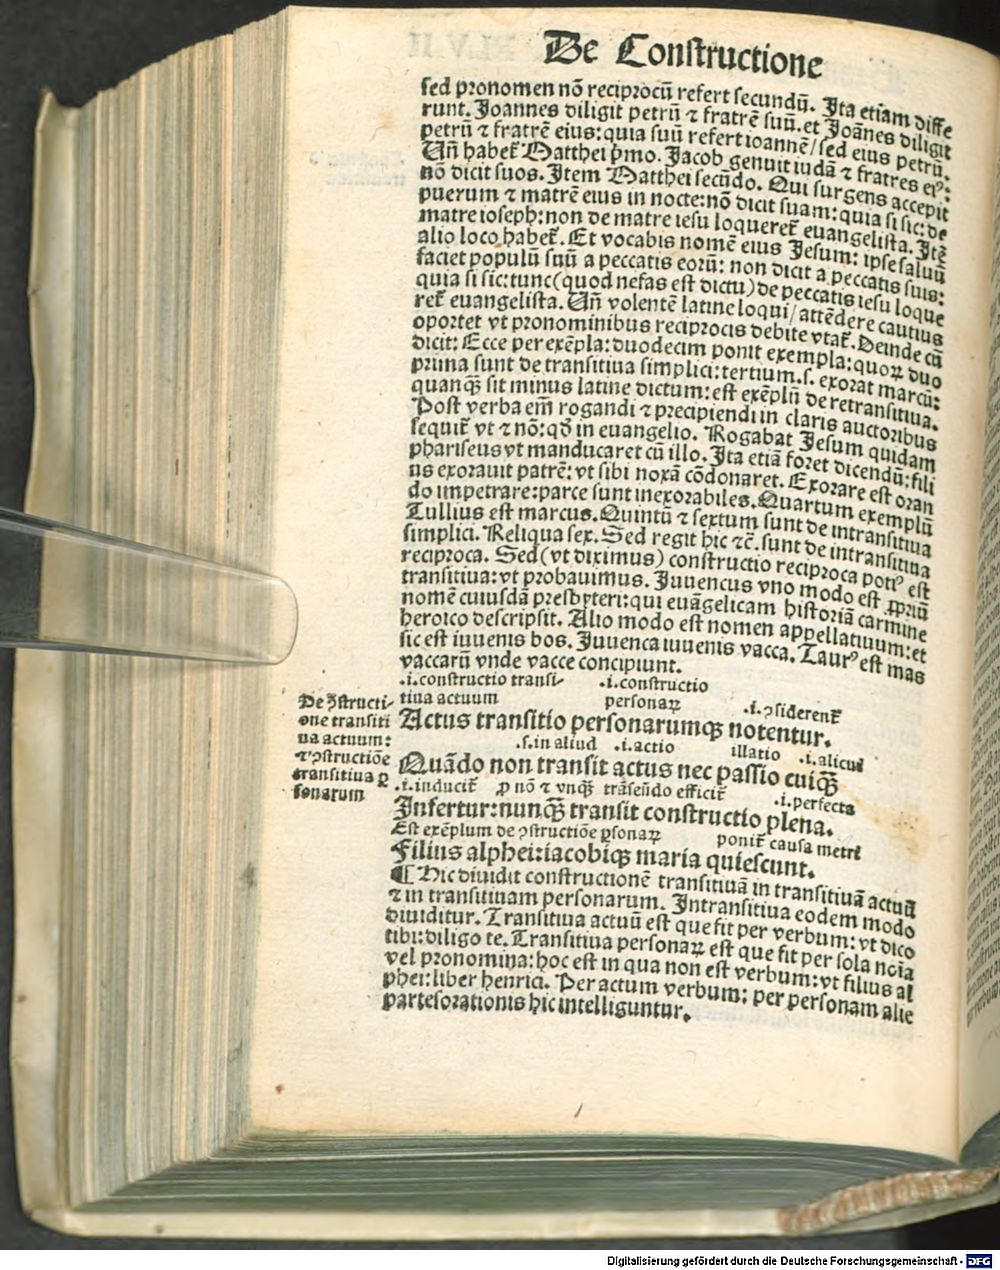 De Constructione
sed pronomen nõ reciprocũ refert secundũ. Ita etiam diffe
runt. Joannes diligit petrũ ⁊ fratrẽ suũ. et Joãnes diligit
petrũ ⁊ fratrẽ eius: quia suũ refert ioannẽ/ sed eius petrũ.
Uñ habet᷑ Matthei p̃mo. Jacob genuit iudã ⁊ fratres eiꝰ:
nõ dicit suos. Item Matthei secũdo. Qui surgens accepit
puerum ⁊ matrẽ eius in nocte: nõ dicit suam: quia si sic: de
matre ioseph: non de matre iesu loqueret᷑ euangelista. Itẽ
alio loco habet᷑. Et vocabis nomẽ eius Jesum: ipse saluũ
faciet populũ suũ a peccatis eorũ: non dicit a peccatis suis:
quia si sic: tunc (quod nefas est dictu) de peccatis iesu loque
ret᷑ euangelista. Uñ volentẽ latine loqui/ attẽdere cautius
oportet vt pronominibus reciprocis debite vtat᷑. Deinde cũ
dicit: Ecce per exẽpla: duodecim ponit exempla: quoꝝ duo
prima sunt de transitiua simplici: tertium .s. exorat marcũ:
quanꝙ̃ sit minus latine dictum: est exẽplũ de retransitiua.
Post verba em̃ rogandi ⁊ precipiendi in claris auctoribus
sequit᷑ vt ⁊ nõ: qð in euangelio. Rogabat Jesum quidam
phariseus vt manducaret cũ illo. Ita etiã foret dicendũ: fili
us exorauit patrẽ: vt sibi noxã cõdonaret. Exorare est oran
do impetrare: parce sunt inexorabiles. Quartum exemplũ
Tullius est marcus. Quintũ ⁊ sextum sunt de intransitiua
simplici. Reliqua sex. Sed regit hic ⁊c̃. sunt de intransitiua
reciproca. Sed (vt diximus) constructio reciproca potiꝰ est
transitiua: vt probauimus. Juuencus vno modo est ꝓpriũ
nomẽ cuiusdã presbyteri: qui euãgelicam historiã carmine
heroico descripsit. Alio modo est nomen appellatiuum: et
sic est iuuenis bos. Juuenca iuuenis vacca. Taurꝰ est mas
vaccarũ vnde vacce concipiunt.
.i. constructio transi- .i. constructio
tiua actuum personaꝝ .i. ꝯsiderent᷑
Actus transitio personarumqꝫ notentur.
.s. in aliud .i. actio illatio .i. alicui
Quãdo non transit actus nec passio cuiꝙ̃
.i. inducit᷑ ꝓ nõ ⁊ vnqꝫ trãseũdo efficit᷑ .i. perfecta
Infertur: nunꝙ̃ transit constructio plena.
Est exẽplum de ꝯstructiõe ꝑsonaꝝ ponit᷑ causa metri
Filius alphei: iacobiqꝫ maria quiescunt.
De ꝯstructi-
one transiti
ua actuum:
⁊ ꝯstructiõe
transitiua ꝑ
sonarum
¶ Hic diuidit constructionẽ transitiuã in transitiuã actuũ
⁊ in transitiuam personarum. Intransitiua eodem modo
diuiditur. Transitiua actuũ est que fit per verbum: vt dico
tibi: diligo te. Transitiua personaꝝ est que fit per sola noĩa
vel pronomina: hoc est in qua non est verbum: vt filius al
phei: liber henrici. Per actum verbum: per personam alie
partes orationis hic intelliguntur.
Digitalisierung gefördert durch die Deutsche Forschungsgemeinschaft - DFG